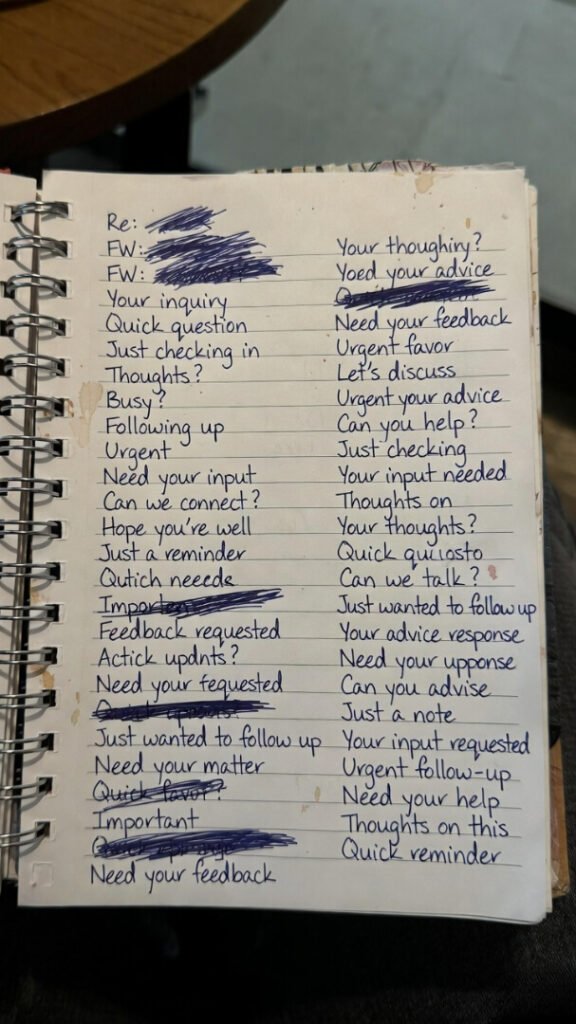 Re:
FW:
FW:
Your inquiry
Quick question
Just checking in
Thoughts?
Busy?
Following up
Urgent
Need your input
Can we connect?
Hope you're well
Just a reminder
Qutich neede
Feedback requested
Actick updnts?
Need your fequested
Just wanted to follow up
Need your matter
Quick favor?
Important
Need your feedback
Your thoughiry?
Yoed your advice
Need your feedback
Urgent favor
Let's discuss
Urgent your advice
Can you help?
Just checking
Your input needed
Thoughts on
Your thoughts?
Quick quiosto
Can we talk?
Just wanted to follow up
Your advice response
Need your upponse
Can you advise
Just a note
Your input requested
Urgent follow-up
Need your help
Thoughts on this
Quick reminder